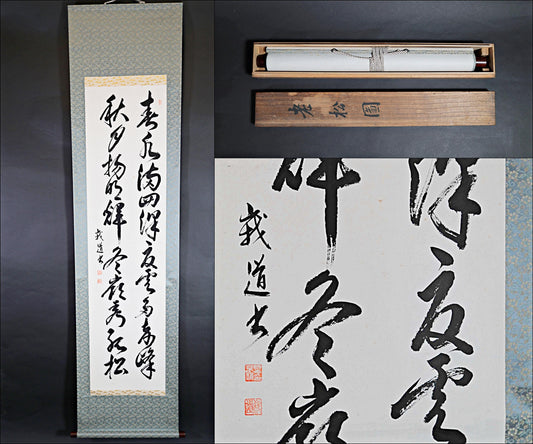 春水満四澤夏雲多奇峰
秋月揚明輝冬嶺秀孤松
道書
老松圖
澤夏雲
輝冬嶺
道書